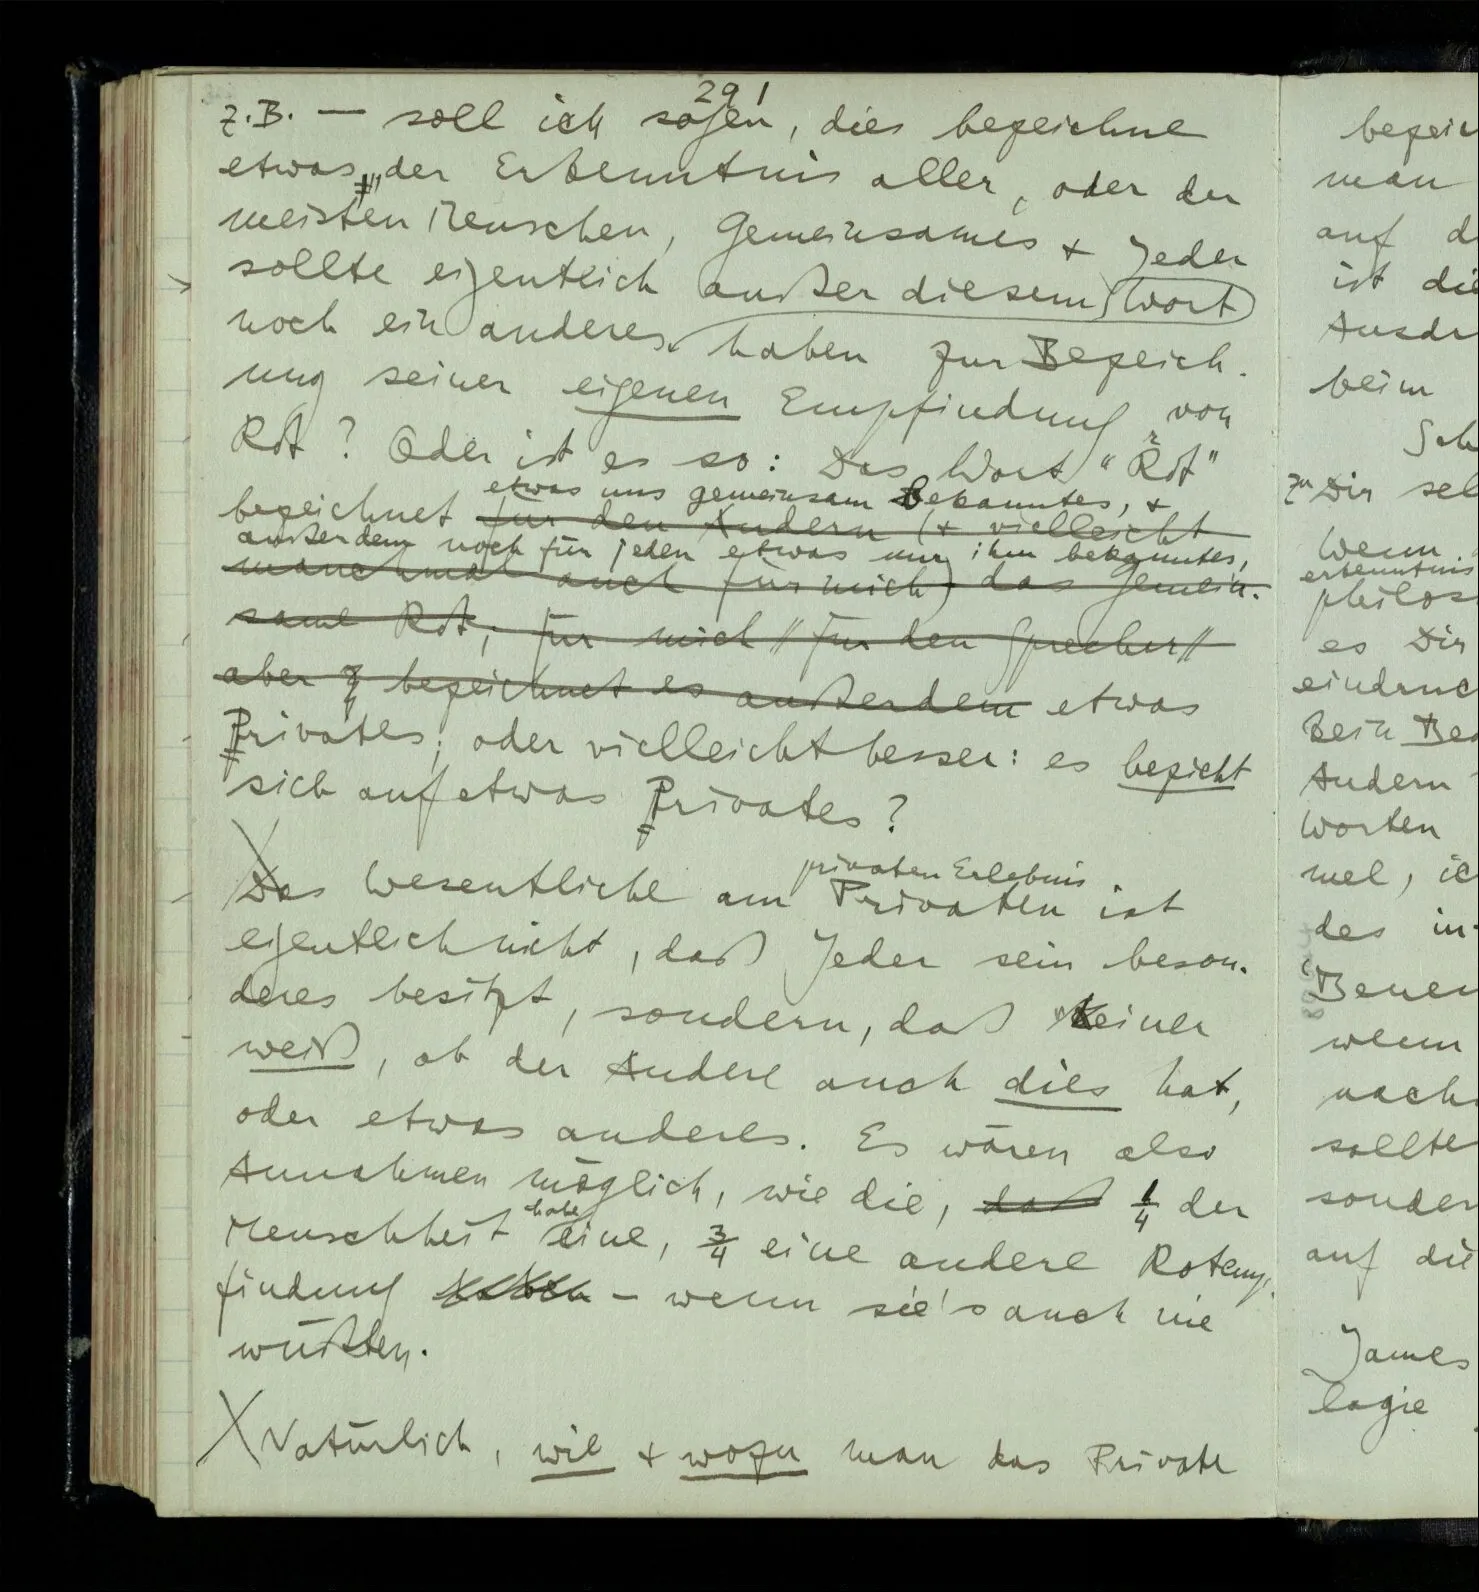 291
z.B. — soll ich sagen, dies bezeichne
etwas der Erkenntnis aller, oder der
meisten Menschen, Gemeinsames & Jeder
sollte eigentlich außer diesem Wort
noch ein anderes haben zur Bezeich-
nung seiner eigenen Empfindung von
Rot? Oder ist es so: Das Wort "Rot"
etwas uns gemeinsam Bekanntes, &
bezeichnet für den Andern (& vielleicht
außerdem noch für jeden etwas nur ihm bekanntes,
manchmal auch für mich) das Gemein-
same Rot; für mich // für den Sprecher //
aber bezeichnet es außerdem etwas
Privates; oder vielleicht besser: es bezieht
sich auf etwas Privates?
privaten Erlebnis
Das Wesentliche am Privaten ist
eigentlich nicht, daß Jeder sein beson-
deres besitzt, sondern, daß keiner
weiß, ob der Andere auch dies hat,
oder etwas anderes. Es wären also
Annahmen möglich, wie die, daß 1/4 der
habe
Menschheit eine, 3/4 eine andere Rotemp-
findung haben – wenn sie's auch nie
wüßten.
Natürlich, wie & wozu man das Private
bezeic
man
auf d
ist die
Ausdr
beim
zu Dir sel
Wenn
erkenntnis
philos
es Dir
eindruc
Dein Be
Andern
Worten
mel, ic
des in-
Benen
wenn
nach
sollte
sonder
auf die
James
logie